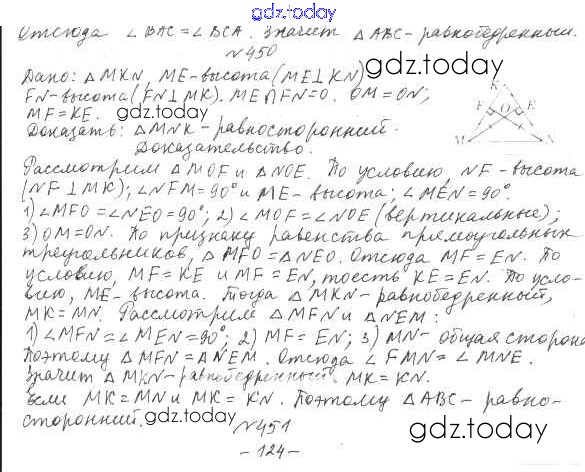 gdz.today
Отсюда ∠BAC = ∠BCA. Значит △ABC - равнобедренный.
№450
Дано: △MKN, ME - высота (ME⊥KN)
gdz.today
FN - высота (FN⊥MK). ME∩FN=O. OM=ON;
MF=KE.
gdz.today
K
F O E
M N
Доказать: △MNK - равносторонний.
Доказательство.
Рассмотрим △MOF и △NOE. По условию, NF - высота
(NF⊥MK); ∠NFM=90° и ME - высота; ∠MEN=90°.
1) ∠MFO=∠NEO=90°; 2) ∠MOF=∠NOE (вертикальные);
3) OM=ON. По признаку равенства прямоугольных
треугольников, △MFO=△NEO. Отсюда MF=EN. По
условию, MF=KE и MF=EN, тоесть KE=EN. По усло-
вию, ME - высота. Тогда △MKN - равнобедренный,
MK=MN. Рассмотрим △MFN и △NEM:
1) ∠MFN=∠MEN=90°; 2) MF=EN; 3) MN - общая сторона
Поэтому △MFN=△NEM. Отсюда ∠FMN=∠MNE.
Значит △MKN - равнобедренный. MK=KN.
Если MK=MN и MK=KN. Поэтому △ABC - равно-
сторонний.
gdz.today
gdz.today
№451
-124-